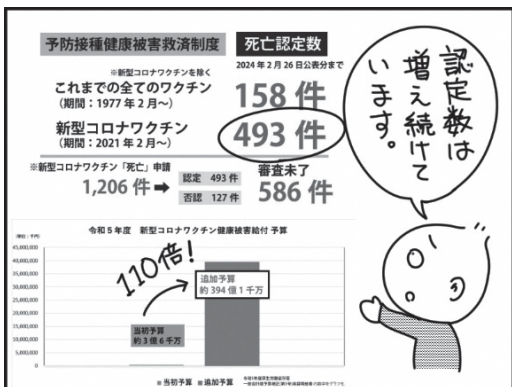 予防接種健康被害救済制度
死亡認定数
2024年2月26日公表分まで
※新型コロナワクチンを除く
これまでの全てのワクチン
(期間:1977年2月〜)
158件
新型コロナワクチン
(期間:2021年2月〜)
493件
※新型コロナワクチン「死亡」申請
1,206件➡
認定 493件
否認 127件
審査未了
586件
認定数は
増え続けて
います。
令和5年度 新型コロナワクチン健康被害給付 予算
(単位:千円)
45,000,000
40,000,000
35,000,000
30,000,000
25,000,000
20,000,000
15,000,000
10,000,000
5,000,000
0
110倍!
追加予算
約394億1千万
当初予算
約3億6千万
■当初予算 ■追加予算